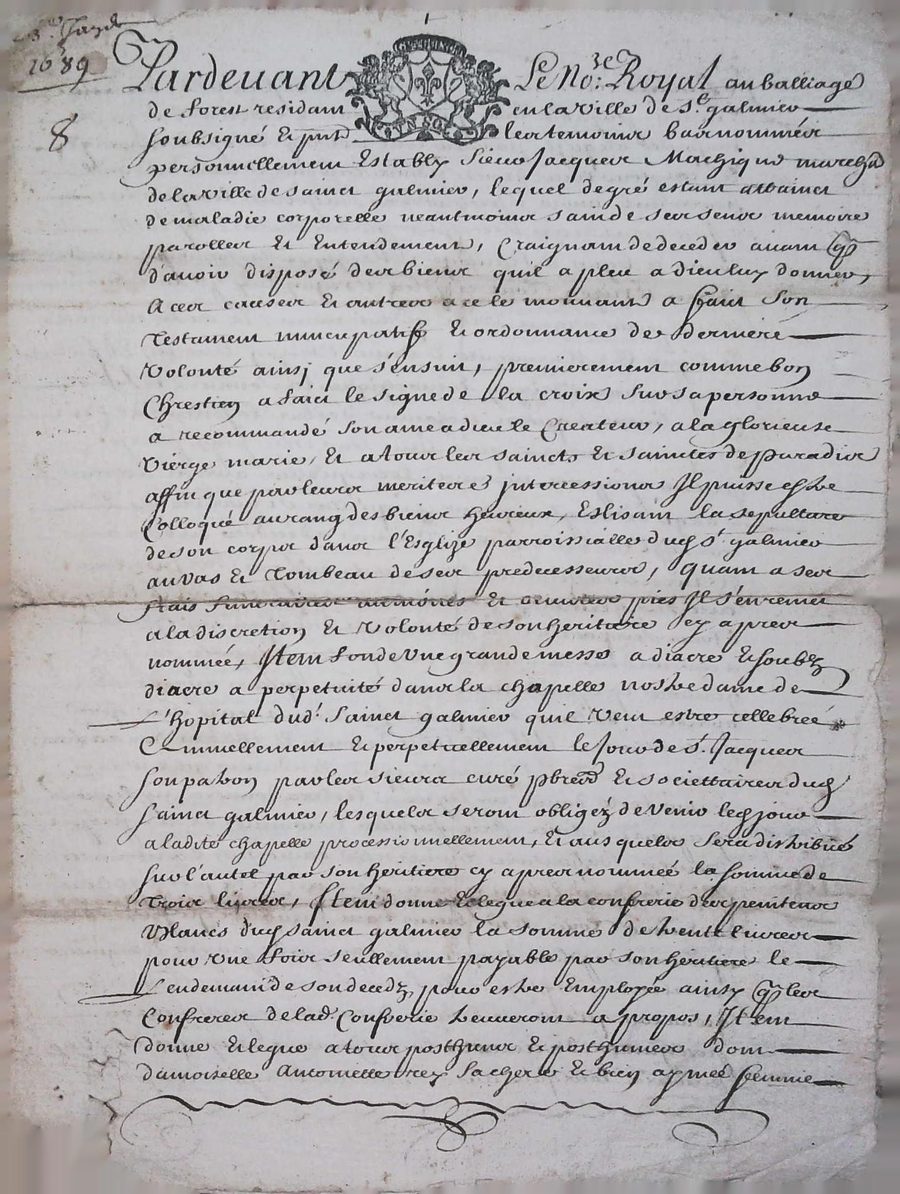 3e
1689
8
GNALITE
UN SOL
Pardevant Le No:re Royal au balliage
de forest residant en la ville de St galmier
soubsigné Et pnt les temoins bas nommés
personnellement Estably Sieur Jacques marchand
de la ville de sainct galmier, lequel de gré estant attainct
de maladie corporelle neantmoins sain de ses sens memoire
parolles Et Entendement, Craignant de deceder avant que
d'avoir disposé des biens qu'il a pleu a dieu luy donner,
A ces causes Et autres a ce le mouvans a faict son
Testament nuncupatif Et ordonnance de derniere
Volonté ainsj que s'ensuit, premierement comme bon
Chrestien a faict le signe de la croix sur sa personne
a recommandé son ame a dieu le Createur, a la glorieuse
Vierge marie, Et a tous les saincts Et sainctes de paradis
affin que par leurs merites intercessions Il puisse estre
Colloqué au rang des biens heureux, Eslisant la sepulture
de son corps dans l'Esglize parroissialle dud St galmier
au vas Et Tombeau de ses predecesseurs, quant a ses
frais funeraires aumônes Et œuvres pies Il s'en remet
a la discretion Et Volonté de son heritiere cy apres
nommée, Item fonde Une grande messe a diacre Et soubz
diacre a perpetuité dans la chapelle nostre dame de
l'hopital dud' Sainct galmier qu'il Veut estre cellebreé
Ennuellement Et perpetuellement le Jour de St Jacques
son patron par les sieurs curé pbres Et societtaires dud
sainct galmier, lesquels seront obligéz de Venir led jour
a ladite chapelle processionnellement, Et ausquels sera distribué
sur l'autel par son heritiere cy apres nommée la somme de
Trois livres, Item donne Et legue a la confrerie des penitens
blancs dud sainct galmier la somme de trente livres
pour Une fois seullement payable par son heritiere le
Lendemain de son decedz, pour estre Employée ainsy que les
Confreres de lad. Confrerie treuveront a propos, Item
donne Et legue a tous posthumes Et posthumes dont
damoiselle Antoinette rey sa chere Et bien aymeé femme